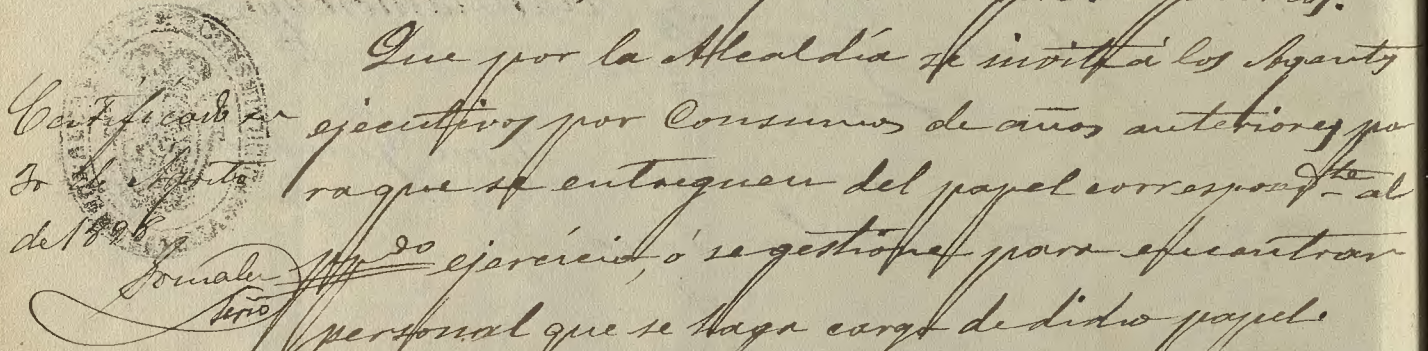 Que por la Alcaldía se invite á los Agentes
ejecutivos por Consumos de años anteriores pa
ra que se entreguen del papel correspondte al
ppdo ejercicio, ó se gestione para encontrar
personal que se haga cargo de dicho papel.
Certificado en
30 de Agosto
de 1898
Srio